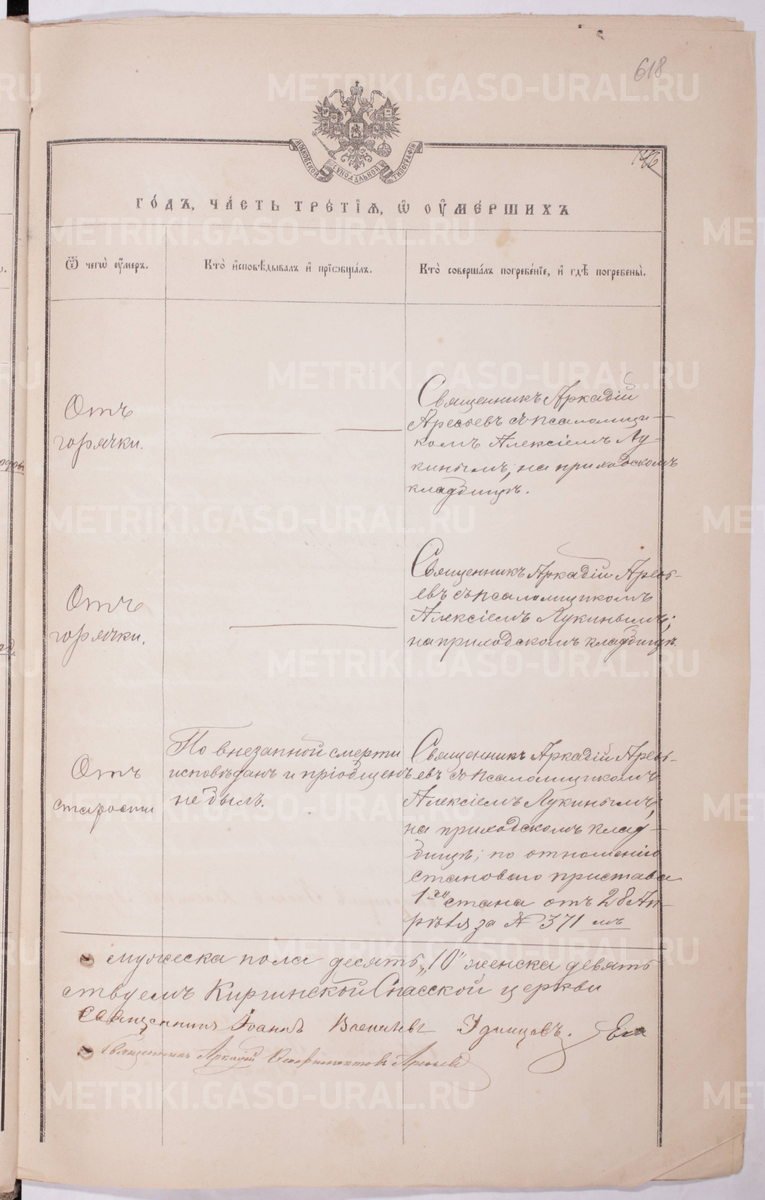 618
146
МОСКОВСКОЙ СѴНОДАЛЬНОЙ ТИПОГРАФІИ
ГО́ДЪ, ЧА́СТЬ ТРЕ́ТІѦ, Ѿ ОУ҆МЕ́РШИХЪ
Ѿ чегѡ̀ оу҆́меръ.
Кто̀ и҆сповѣ́дывалъ и҆ прїѡбща́лъ.
Кто̀ соверша́лъ погребе́нїе, и҆ гдѣ̀ погребены̀.
Отъ
горячки.
Священникъ Аркадій
Аресьевъ съ псаломщи-
комъ Алексіемъ Лу-
кинымъ, на приходскомъ
кладбищѣ.
Отъ
горячки.
Священникъ Аркадій Аресь-
евъ съ псаломщикомъ
Алексіемъ Лукинымъ;
на приходскомъ кладбищѣ.
Отъ
старости
По внезапной смерти
исповѣданъ и пріобщенъ
не былъ.
Священникъ Аркадій Аресь-
евъ съ псаломщикомъ
Алексіемъ Лукинымъ,
на приходскомъ клад-
бищѣ; по отношенію
становаго пристава
1го стана отъ 28 Ап-
рѣля за № 371 мъ
мужеска пола десять „10" женска девять
ствуемъ Киргинской Спасской церкви
священникъ Іоаннъ Удинцовъ.
Священникъ Аркадій
METRIKI.GASO-URAL.RU